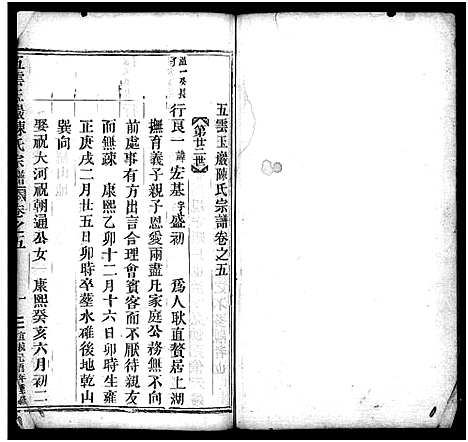 五雲玉巖陳氏宗譜卷之五
第廿二世
行良一諱宏基字盛初 為人耿直贅居上湖
撫育義子親子恩愛兩盡凡家庭公務無不向
前處事有方出言合理會賓客不厭待親友
而無疎 康熙乙卯十二月十六日卯時生雍
正庚戌二月廿五日卯時卒墓水碓後地乾山
巽向
娶祝大河祝朝通公女 康熙癸亥六月初二
五雲玉巖陳氏宗譜 卷之五 一